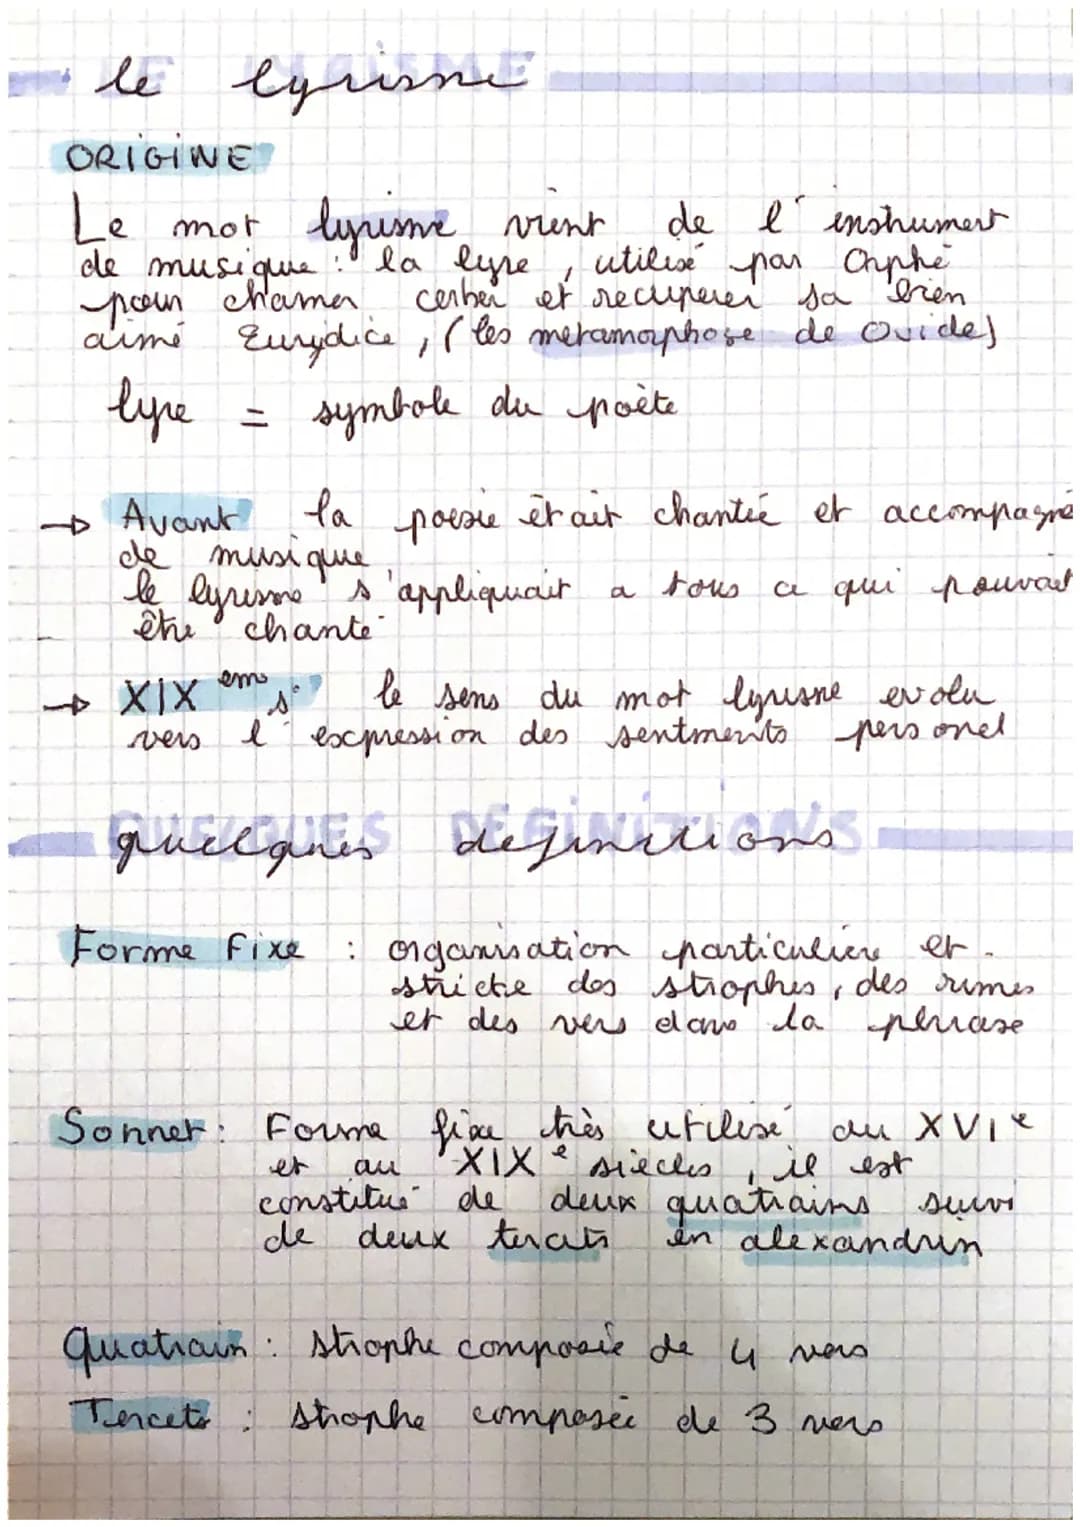 le lyrisme
ORIGINE
Le mot lyrisme vient de l'instrument
de musique : la lyre, utilisé par Orphé
pour chamer cerber et recuperer sa bien
aimé Eurydice, (les metamorphose de Ovide)
lyre = symbole du poète
→ Avant la poesie était chantée et accompagné
de musique
le lyrisme s'appliquait a tous ce qui pouvait
être chanté
→ XIX eme s. le sens du mot lyrisme evolu
vers l'expression des sentments personel
quelques definitions
Forme fixe : organisation particuliere et
stricte des strophes, des rimes
et des vers dans la phrase
Sonnet : Forme fixe très utilisé au XVIe
et au XIXe siècles, il est
constitué de deux quatrains suivi
de deux tercets en alexandrin
Quatrain : strophe composée de 4 vers
Tercets : strophe composée de 3 vers